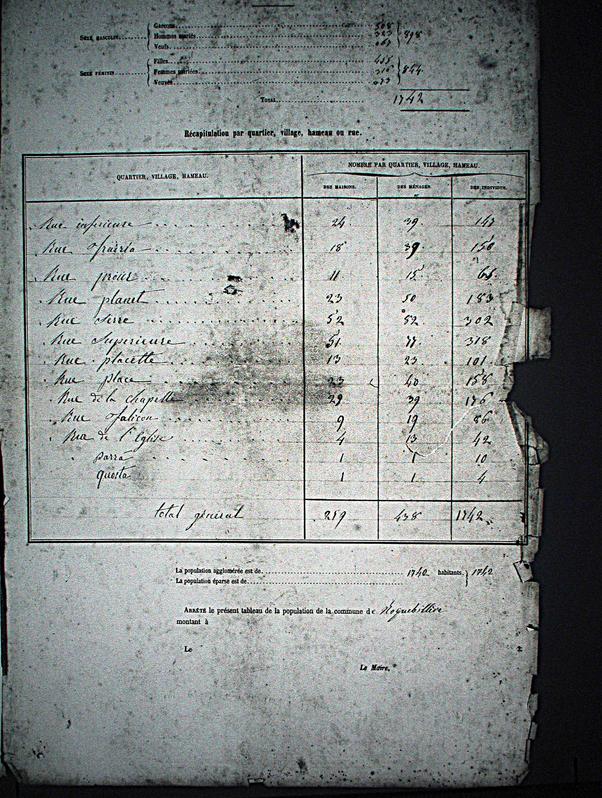 Sexe masculin
Garçons 508
Hommes mariés 323
Veufs 067
898
Sexe féminin
Filles
Femmes mariées
Veuves 073
844
Total 1742
Récapitulation par quartier, village, hameau ou rue.
QUARTIER, VILLAGE, HAMEAU.
NOMBRE PAR QUARTIER, VILLAGE, HAMEAU.
DES MAISONS. DES MÉNAGES. DES INDIVIDUS.
Rue inferieure 24 39 147
Rue 18 39 150
Rue 11 15 65
Rue planet 23 50 183
Rue Serre 52 82 302
Rue Superieure 51 77 318
Rue placette 13 23 101
Rue place 23 40 158
Rue de la chapelle 29 39 176
Rue falicon 9 19 86
Rue de l'Eglise 4 13 42
parra 1 1 10
questa 1 1 4
total général 259 438 1742
La population agglomérée est de 1742 habitants. 1742
La population éparse est de
ARRÊTÉ le présent tableau de la population de la commune de Roquebillière
montant à
Le
Le Maire,